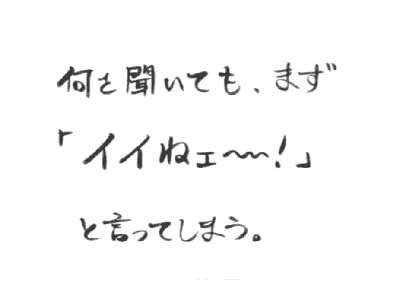 何を聞いても、まず
「イイねェ〜〜!」
と言ってしまう。